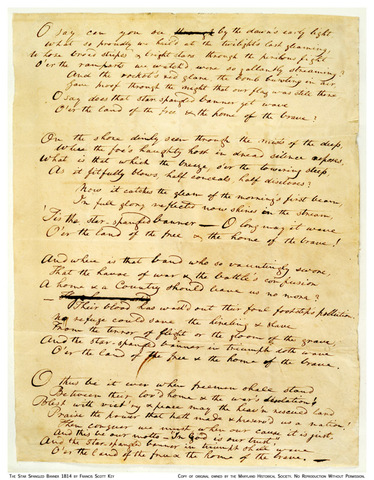 O say can you see by the dawn's early light
What so proudly we hail'd at the twilight's last gleaming,
Whose broad stripes & bright stars through the perilous fight
O'er the ramparts we watch'd, were so gallantly streaming?
And the rocket's red glare, the bomb bursting in air,
Gave proof through the night that our flag was still there
O say does that star-spangled banner yet wave
O'er the land of the free & the home of the brave?
On the shore dimly seen through the mists of the deep,
Where the foe's haughty host in dread silence reposes,
What is that which the breeze, o'er the towering steep,
As it fitfully blows, half conceals, half discloses?
Now it catches the gleam of the morning's first beam,
In full glory reflected now shines in the stream,
'Tis the star-spangled banner — O long may it wave
O'er the land of the free & the home of the brave!
And where is that band who so vauntingly swore,
That the havoc of war & the battle's confusion
A home & a Country should leave us no more?
Their blood has wash'd out their foul footsteps pollution.
No refuge could save the hireling & slave
From the terror of flight or the gloom of the grave,
And the star-spangled banner in triumph doth wave
O'er the land of the free & the home of the brave.
O thus be it ever when freemen shall stand
Between their lov'd home & the war's desolation!
Blest with vict'ry & peace may the heav'n rescued land
Praise the power that hath made & preserv'd us a nation!
Then conquer we must, when our cause it is just,
And this be our motto — In God is our trust,
And the star-spangled banner in triumph shall wave
O'er the land of the free & the home of the brave. —
THE STAR SPANGLED BANNER 1814 BY FRANCIS SCOTT KEY
COPY OF ORIGINAL OWNED BY THE MARYLAND HISTORICAL SOCIETY. NO REPRODUCTION WITHOUT PERMISSION.